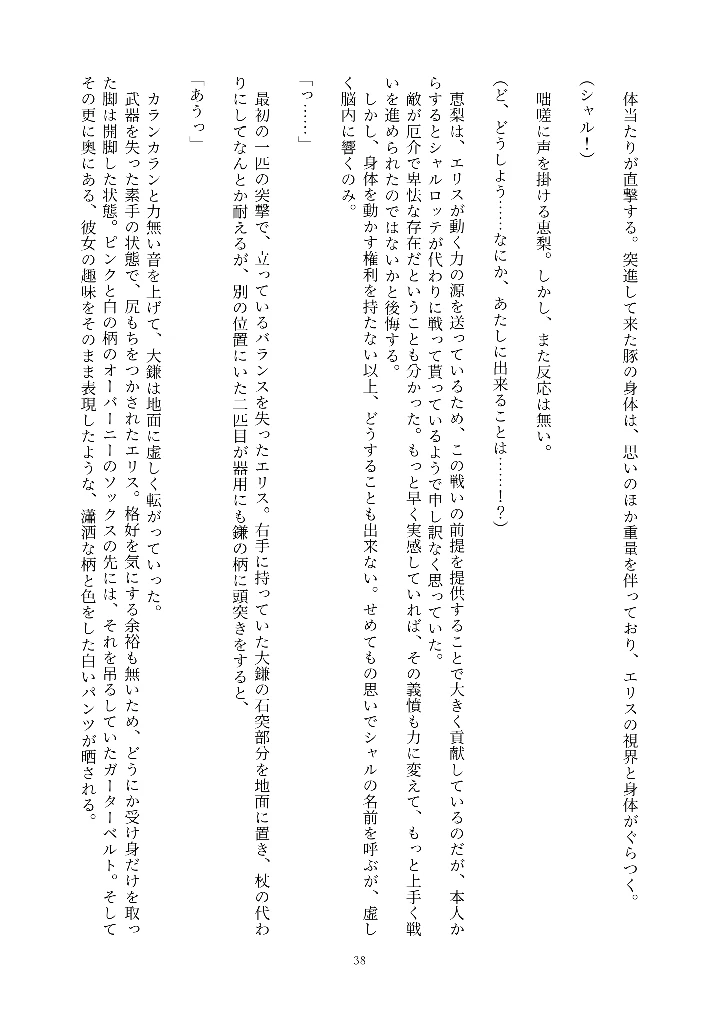 体当たりが直撃する。突進して来た豚の身体は、思いのほか重量を伴っており、エリスの視界と身体がぐらつく。
（シャル！）
咄嗟に声を掛ける恵梨。しかし、また反応は無い。
（ど、どうしよう……なにか、あたしに出来ることは……！？）
恵梨は、エリスが動く力の源を送っているため、この戦いの前提を提供することで大きく貢献しているのだが、本人か
らするとシャルロッテが代わりに戦って貰っているようで申し訳なく思っていた。
敵が厄介で卑怯な存在だということも分かった。もっと早く実感していれば、その義憤も力に変えて、もっと上手く戦
いを進められたのではないかと後悔する。
しかし、身体を動かす権利を持たない以上、どうすることも出来ない。せめてもの思いでシャルの名前を呼ぶが、虚し
く脳内に響くのみ。
「っ……」
最初の一匹の突撃で、立っているバランスを失ったエリス。右手に持っていた大鎌の石突部分を地面に置き、杖の代わ
りにしてなんとか耐えるが、別の位置にいた二匹目が器用にも鎌の柄に頭突きをすると、
「あうっ」
カランカランと力無い音を上げて、大鎌は地面に虚しく転がっていった。
武器を失った素手の状態で、尻もちをつかされたエリス。格好を気にする余裕も無いため、どうにか受け身だけを取っ
た脚は開脚した状態。ピンクと白の柄のオーバーニーのソックスの先には、それを吊るしていたガーターベルト。そして
その更に奥にある、彼女の趣味をそのまま表現したような、瀟洒な柄と色をした白いパンツが晒される。
38